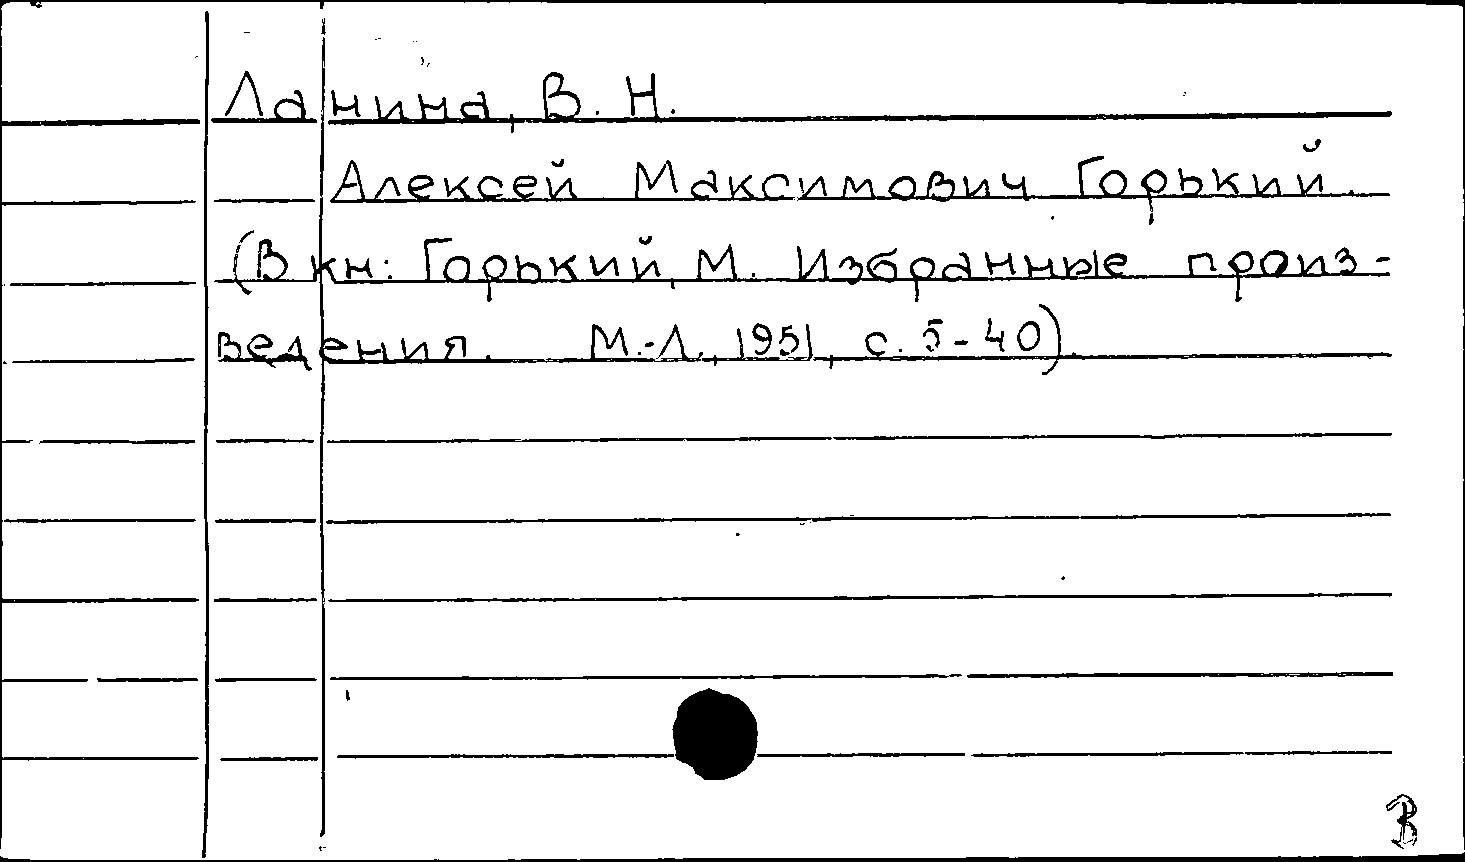 Ланина, В. Н.
Алексей Максимович Горький.
(В кн: Горький, М. Избранные произ-
ведения. М.-Л., 1951, с. 5-40).
В